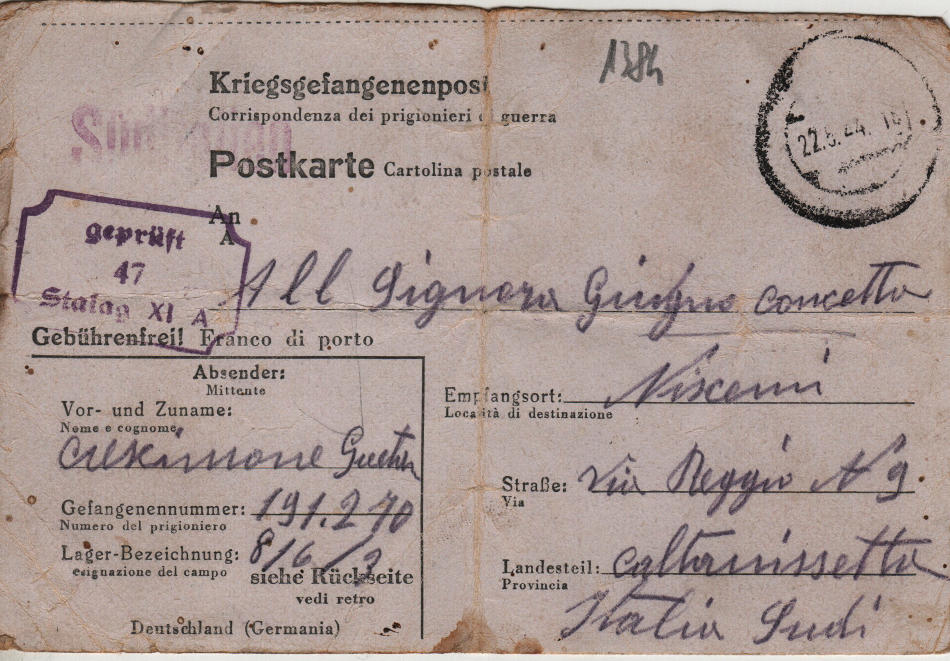 1384
Kriegsgefangenenpost
Corrispondenza dei prigionieri di guerra
22.6.44.
Postkarte Cartolina postale
geprüft
47
Stalag XI A
An
A
All Signora Giugno concetta
Gebührenfrei! Franco di porto
Absender:
Mittente
Vor- und Zuname:
Nome e cognome
crescimone
Gefangenennummer: 191.270
Numero del prigioniero
Lager-Bezeichnung: 816/3
esignazione del campo
siehe Rückseite
vedi retro
Deutschland (Germania)
Empfangsort: Niscemi
Località di destinazione
Straße: Via Reggio N 9
Via
Landesteil: caltanissetta
Provincia
Italia Sudi